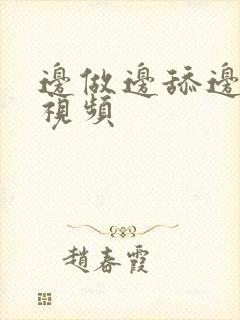 邊做邊舔邊
視頻
趙春霞